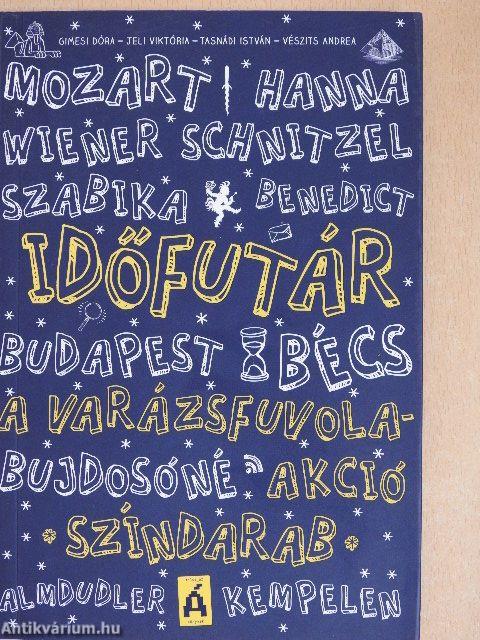 GIMESI DÓRA – JELI VIKTÓRIA – TASNÁDI ISTVÁN – VÉSZITS ANDREA
MOZART HANNA
WIENER SCHNITZEL
SZABIKA BENEDICT
IDŐFUTÁR
BUDAPEST BÉCS
A VARÁZSFUVOLA-
BUJDOSÓNÉ AKCIÓ
SZÍNDARAB
ALMDUDLER Á KEMPELEN
Antikvárium.hu